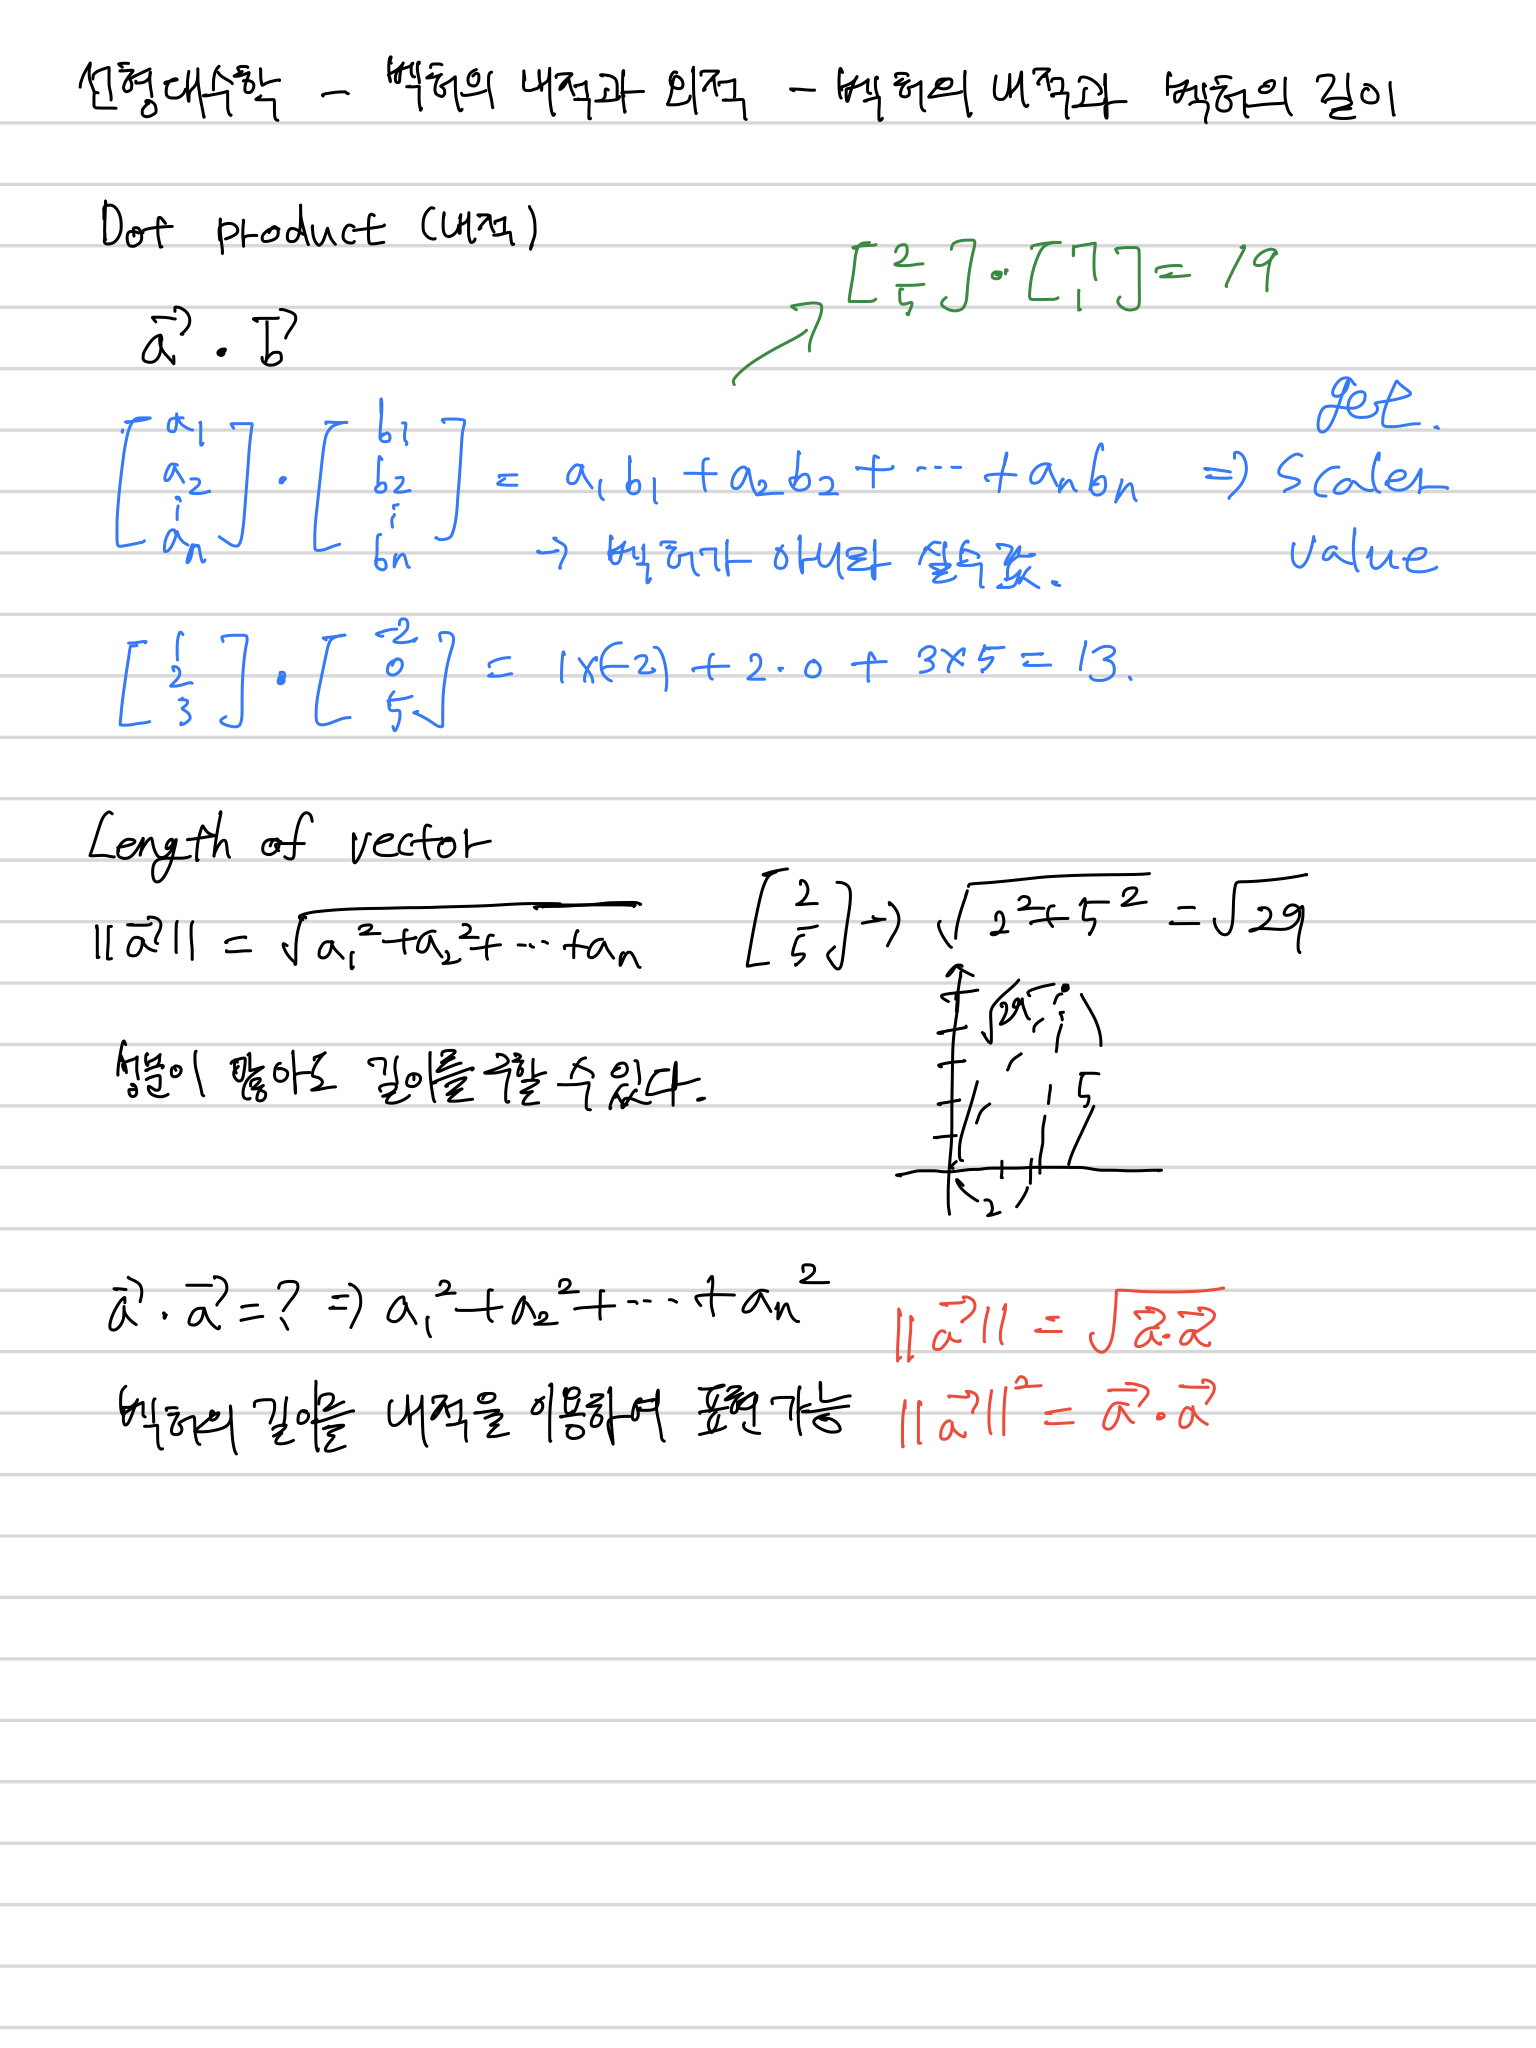 선형대수학 - 벡터의 내적과 외적 - 벡터의 내적과 벡터의 길이
Dot product (내적)
[2 5] · [7 1] = 19
a⃗ · b⃗
[a₁ a₂ ⋮ aₙ] · [b₁ b₂ ⋮ bₙ] = a₁b₁ + a₂b₂ + ⋯ + aₙbₙ ⇒ get. Scaler value
→ 벡터가 아니라 실수값.
[1 2 3] · [-2 0 5] = 1×(-2) + 2·0 + 3×5 = 13.
Length of vector
||a⃗|| = √(a₁² + a₂² + ⋯ + aₙ) [2 5] → √(2² + 5²) = √29
√29
성분이 많아도 길이를 구할 수 있다.
5
2
a⃗ · a⃗ = ? ⇒ a₁² + a₂² + ⋯ + aₙ²
||a⃗|| = √(a⃗·a⃗)
벡터의 길이를 내적을 이용하여 표현 가능
||a⃗||² = a⃗ · a⃗